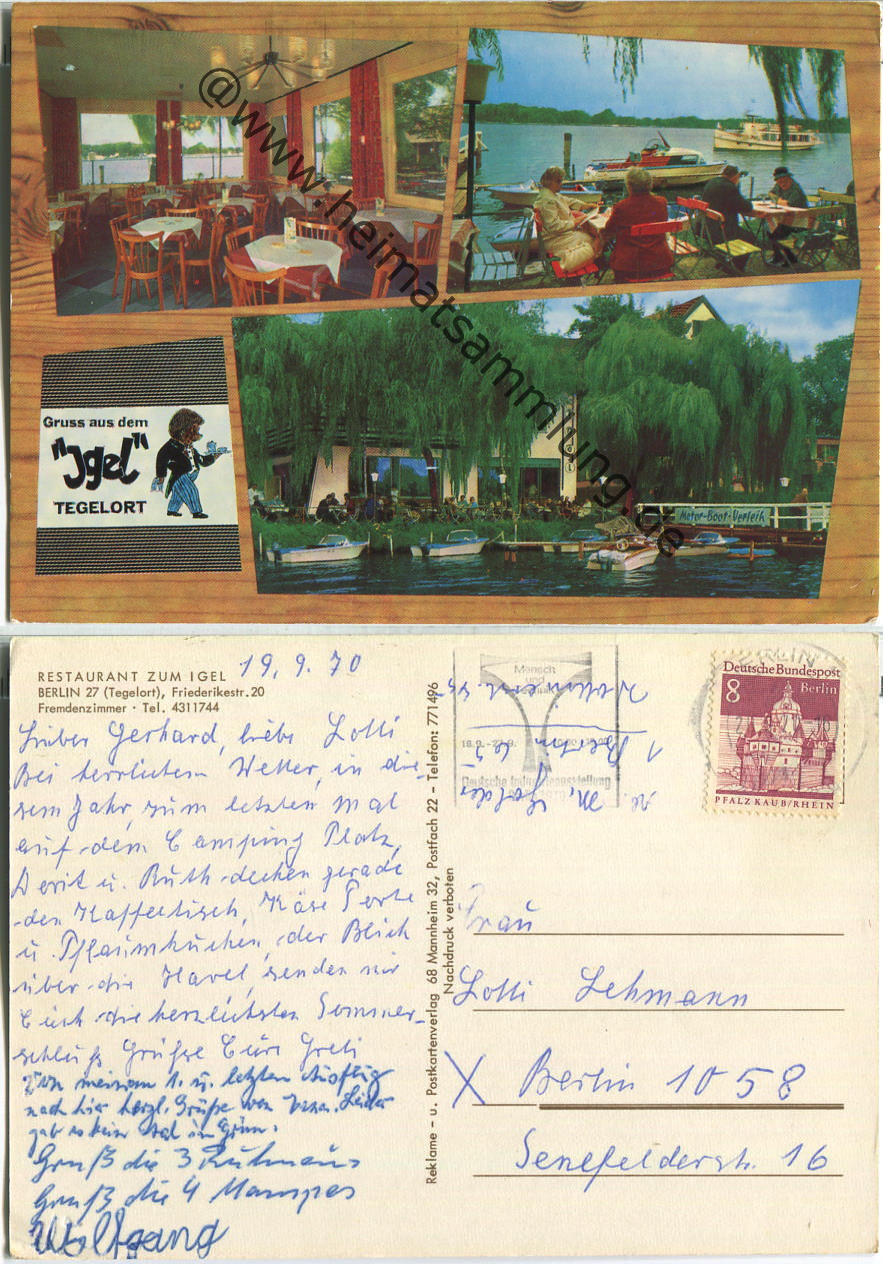 Gruss aus dem
"Igel"
TEGELORT
IGEL
Motor-Boot-Verleih
@www.heimatsammlung.de
RESTAURANT ZUM IGEL
BERLIN 27 (Tegelort), Friederikestr. 20
Fremdenzimmer · Tel. 4311744
19. 9. 70
Lieber Gerhard, liebe Lotti
Bei herrlichem Wetter, in die-
sem Jahr, zum letzten Mal
auf dem Camping Platz,
Dorit u. Ruth decken gerade
den Kaffeetisch, Käse Torte
u. Pflaumkuchen, der Blick
über die Havel, senden wir
Euch die herzlichsten Sommer-
schluß Grüße Eure Greti
Von meinem 1. u. letzten Ausflug
nach hier herzl. Grüße von Leider
gab es kein Bad im Grün.
Gruß die 3
Gruß die 4
Wolfgang
Reklame - u. Postkartenverlag 68 Mannheim 32, Postfach 22 - Telefon: 771496
Nachdruck verboten
Mensch
und
18.9.-27.9.
Deutsche Industrieausstellung
1 Berlin 65
BERLIN
Deutsche Bundespost
8 Berlin
PFALZ KAUB/RHEIN
Frau
Lotti Lehmann
X Berlin 1058
Senefelderstr. 16